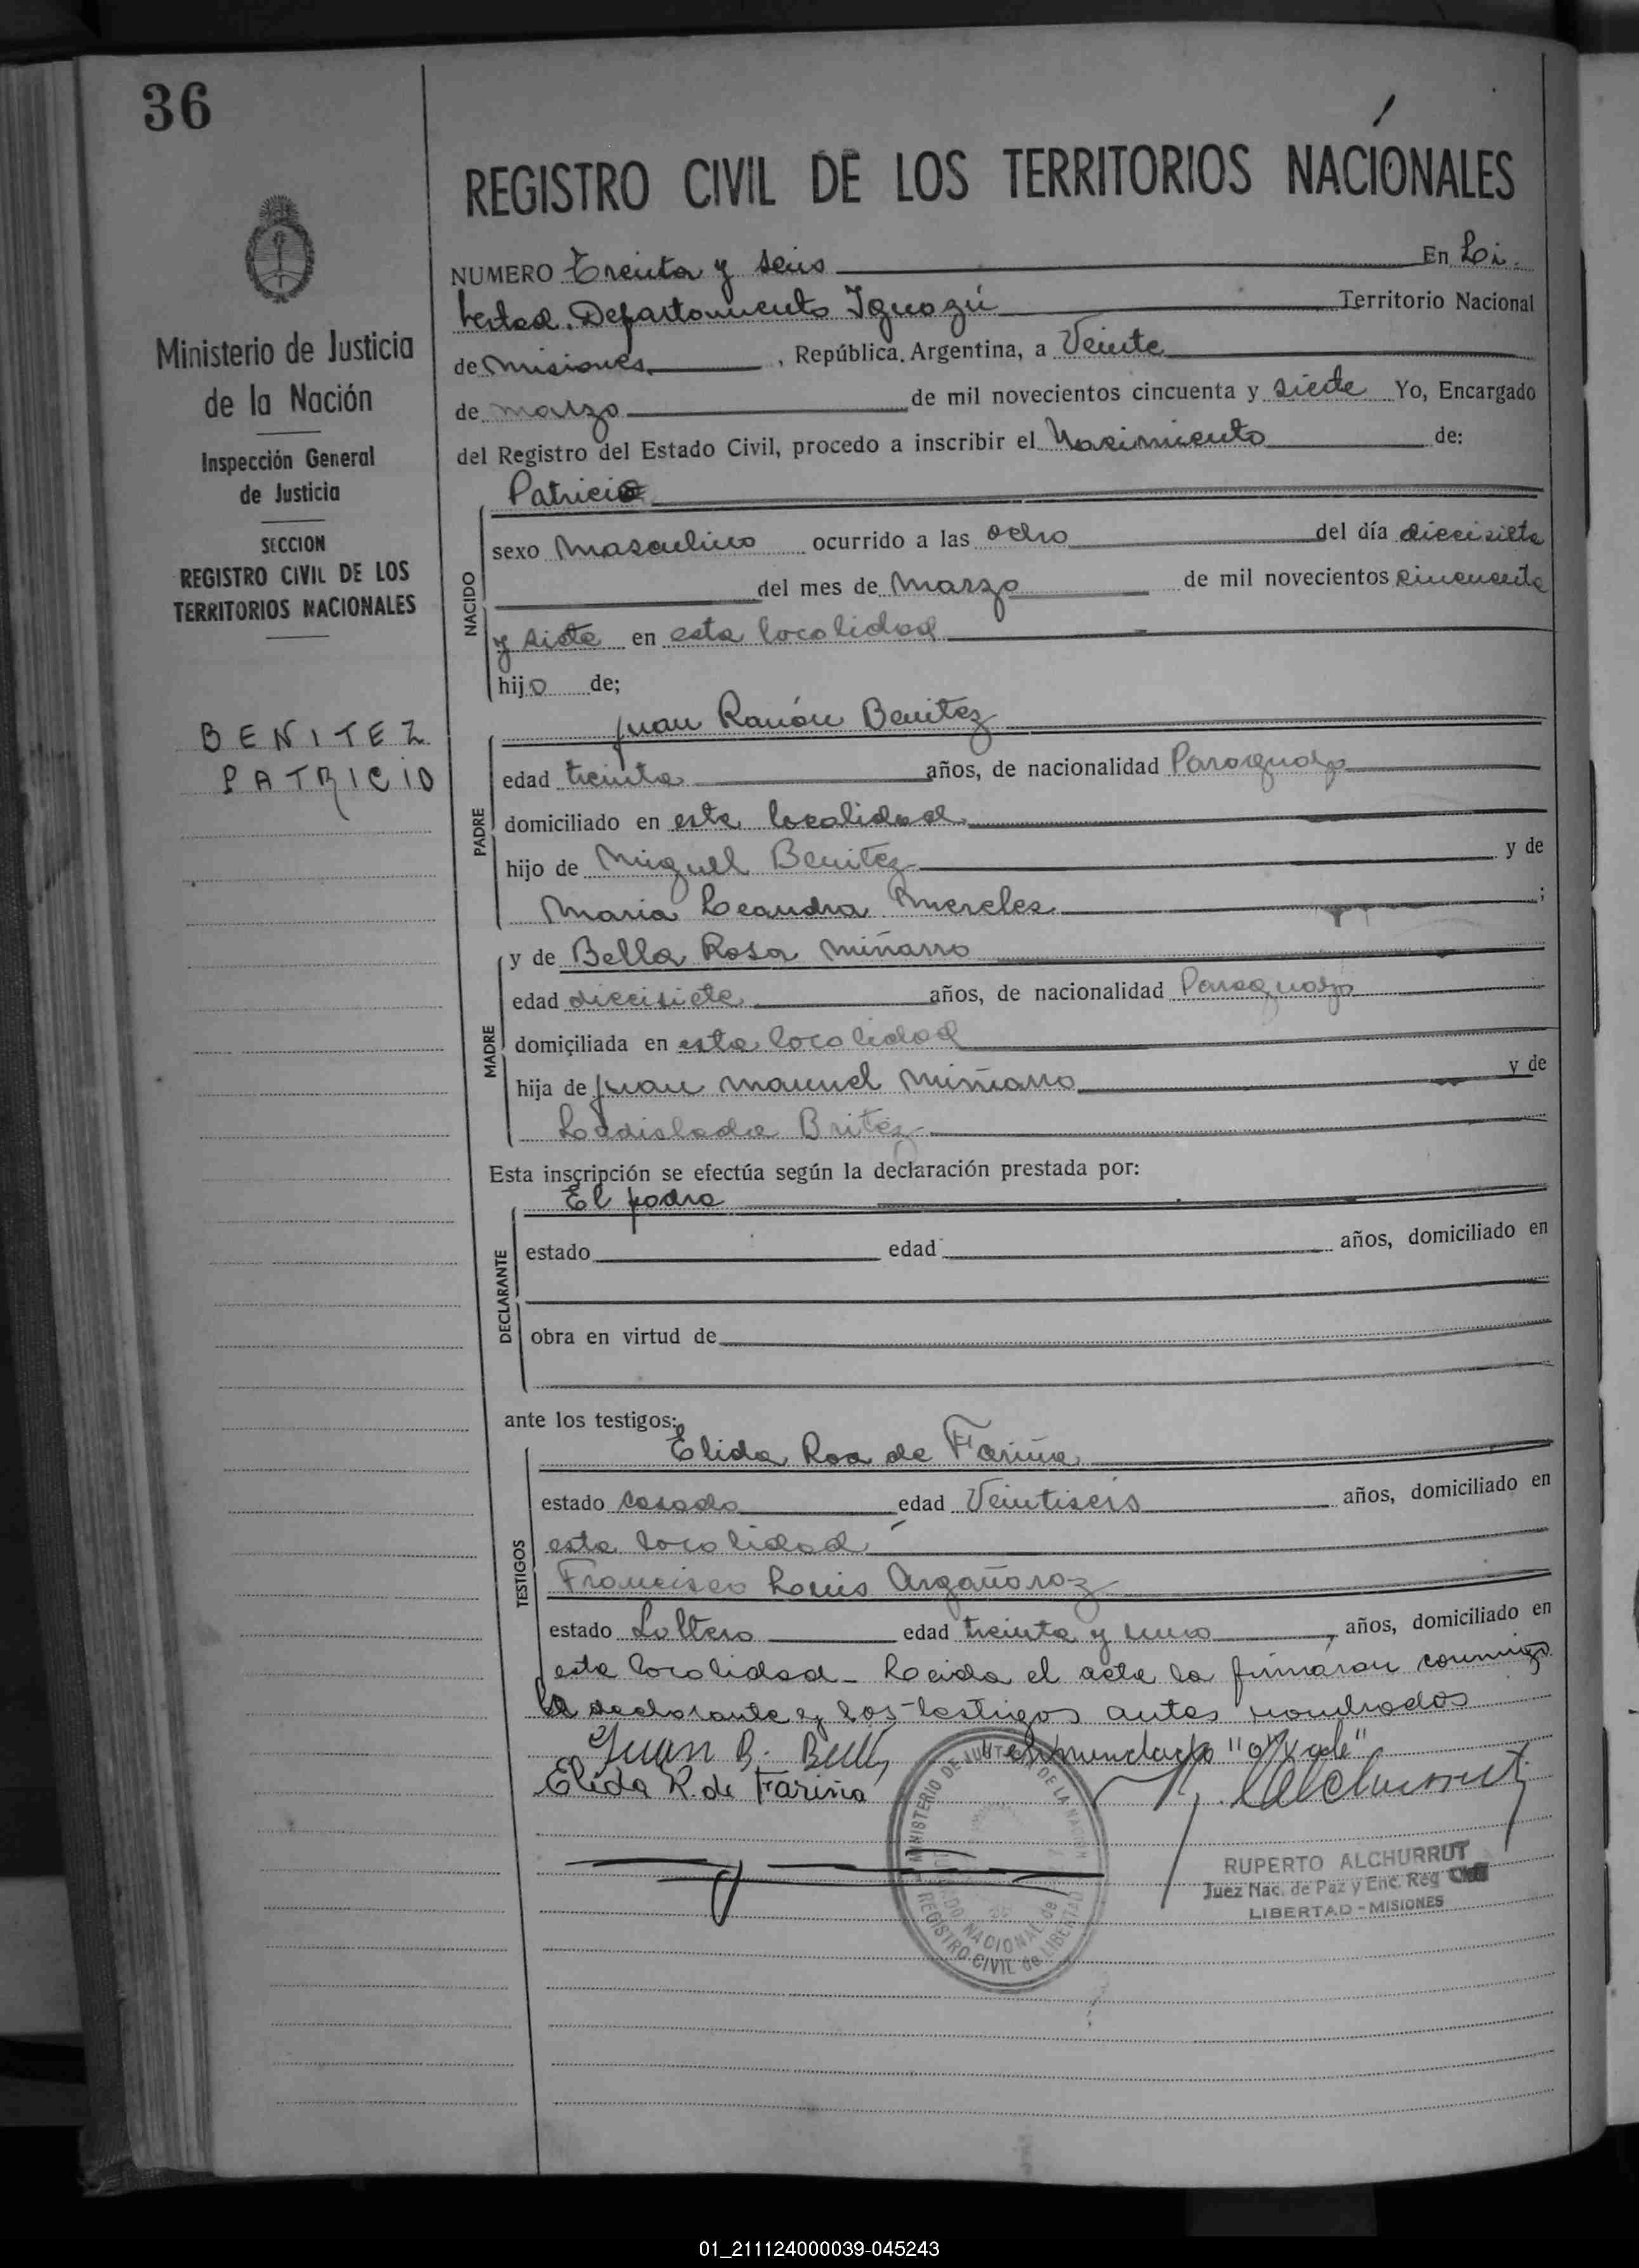 36
REGISTRO CIVIL DE LOS TERRITORIOS NACIONALES
Ministerio de Justicia
de la Nación
Inspección General
de Justicia
SECCION
REGISTRO CIVIL DE LOS
TERRITORIOS NACIONALES
BENITEZ
PATRICIO
NUMERO Treinta y seis En Li
bertad. Departamento Iguazú Territorio Nacional
de Misiones, República Argentina, a Veinte
de marzo de mil novecientos cincuenta y siete Yo, Encargado
del Registro del Estado Civil, procedo a inscribir el Nacimiento de:
NACIDO
Patricio
sexo Masculino ocurrido a las ocho del día diecisiete
del mes de Marzo de mil novecientos cincuenta
y siete en esta localidad
hijo de;
PADRE
Juan Ramón Benitez
edad treinta años, de nacionalidad Paraguaya
domiciliado en esta localidad
hijo de Miguel Benitez y de
Maria Leandra Mereles ;
MADRE
y de Bella Rosa Miñarro
edad diecisiete años, de nacionalidad Paraguaya
domiciliada en esta localidad
hija de Juan Manuel Miñarro y de
Ladislada Britez
Esta inscripción se efectúa según la declaración prestada por:
DECLARANTE
El padre
estado edad años, domiciliado en
obra en virtud de
ante los testigos:
TESTIGOS
Elida Roa de Fariña
estado casada edad Veintiseis años, domiciliado en
esta localidad
Francisco Louis Argañaroz
estado Soltero edad treinta y uno, años, domiciliado en
esta localidad - Leida el acta la firmaron conmigo
el declarante y los testigos antes nombrados
Juan B. enmendado "o" vale"
Elida R. de Fariña
MINISTERIO DE JUSTICIA DE LA NACION
JUZGADO NACIONAL de PAZ
REGISTRO CIVIL de LIBERTAD
RUPERTO ALCHURRUT
Juez Nac. de Paz y Enc. Reg Civil
LIBERTAD - MISIONES
01_211124000039-045243